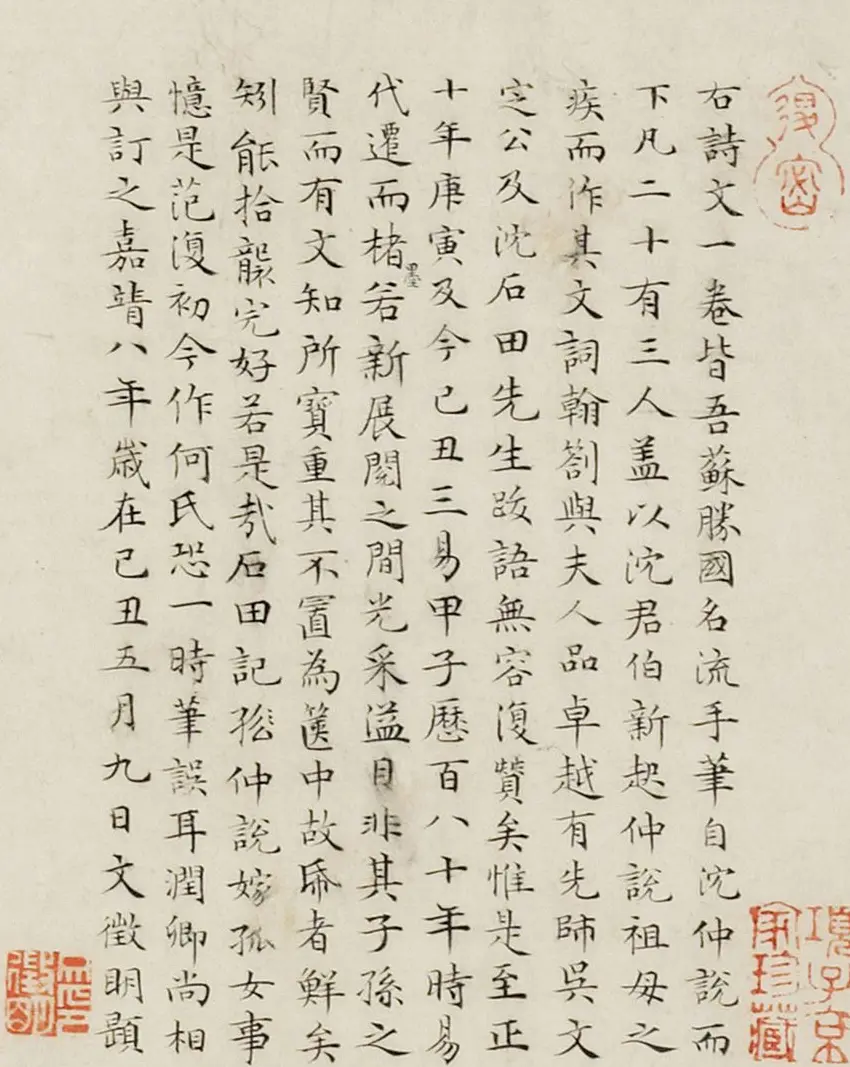 右詩文一卷皆吾蘇勝國名流手筆自沈仲說而
下凡二十有三人盖以沈君伯新起仲說祖母之
疾而作其文詞翰劄與夫人品卓越有先師吳文
定公及沈石田先生跋語無容復贊矣惟是至正
十年庚寅及今己丑三易甲子歷百八十年時易
代遷而楮墨若新展閱之間光采溢目非其子孫之
賢而有文知所寶重其不置為篋中故帋者鮮矣
矧能拾襲完好若是哉石田記孫仲說嫁孤女事
憶是范復初今作何氏恐一時筆誤耳潤卿尚相
與訂之嘉靖八年歲在己丑五月九日文徵明題
項子京
家珍藏